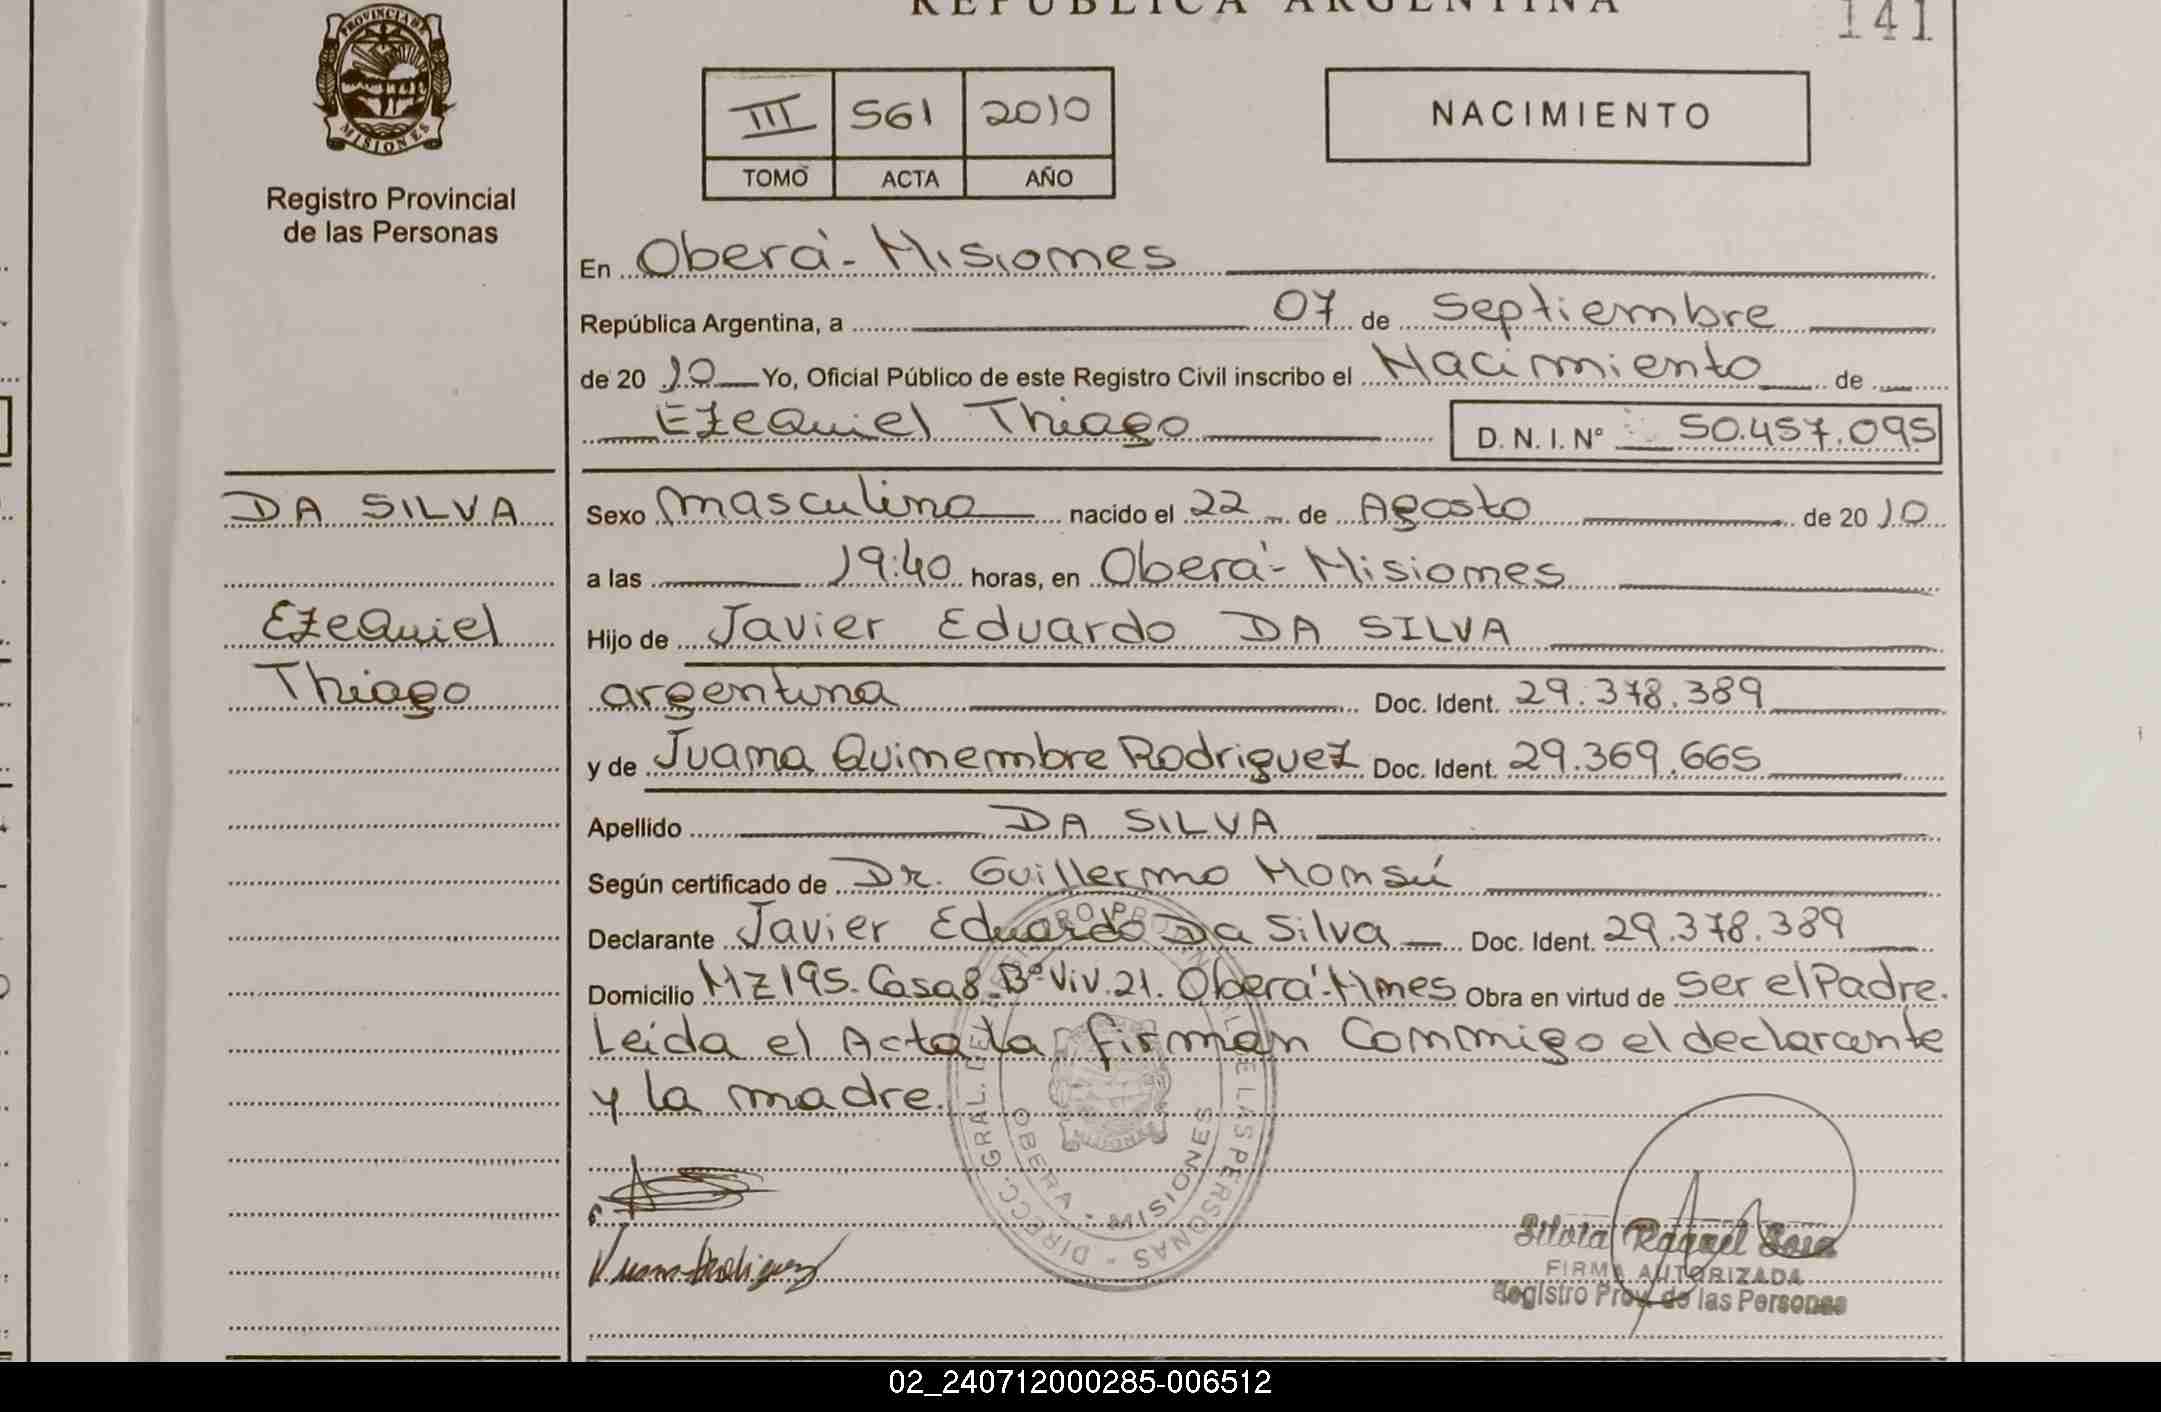 REPUBLICA ARGENTINA
141
PROVINCIA DE
MISIONES
Registro Provincial
de las Personas
III 561 2010
TOMO ACTA AÑO
NACIMIENTO
En Oberá - Misiones
República Argentina, a 07 de Septiembre
de 20 10 Yo, Oficial Público de este Registro Civil inscribo el Nacimiento de
Ezequiel Thiago D. N. I. Nº 50.457.095
DA SILVA
Ezequiel
Thiago
Sexo masculino nacido el 22 de Agosto de 20 10
a las 19:40 horas, en Oberá - Misiones
Hijo de Javier Eduardo DA SILVA
argentina Doc. Ident. 29.378.389
y de Juana Quinembre Rodriguez Doc. Ident. 29.369.665
Apellido DA SILVA
Según certificado de Dr. Guillermo
Declarante Javier Eduardo Da Silva Doc. Ident. 29.378.389
Domicilio MZ195. Casa8. Bº Viv. 21. Oberá - Mnes Obra en virtud de Ser el Padre.
Leida el Acta la firman Conmigo el declarante
y la madre.
DIRECC. GRAL. DEL REGISTRO PROVINCIAL DE LAS PERSONAS
OBERA - MISIONES
Juana Rodriguez
Silvia Raquel Sosa
FIRMA AUTORIZADA
Registro Prov. de las Personas
02_240712000285-006512